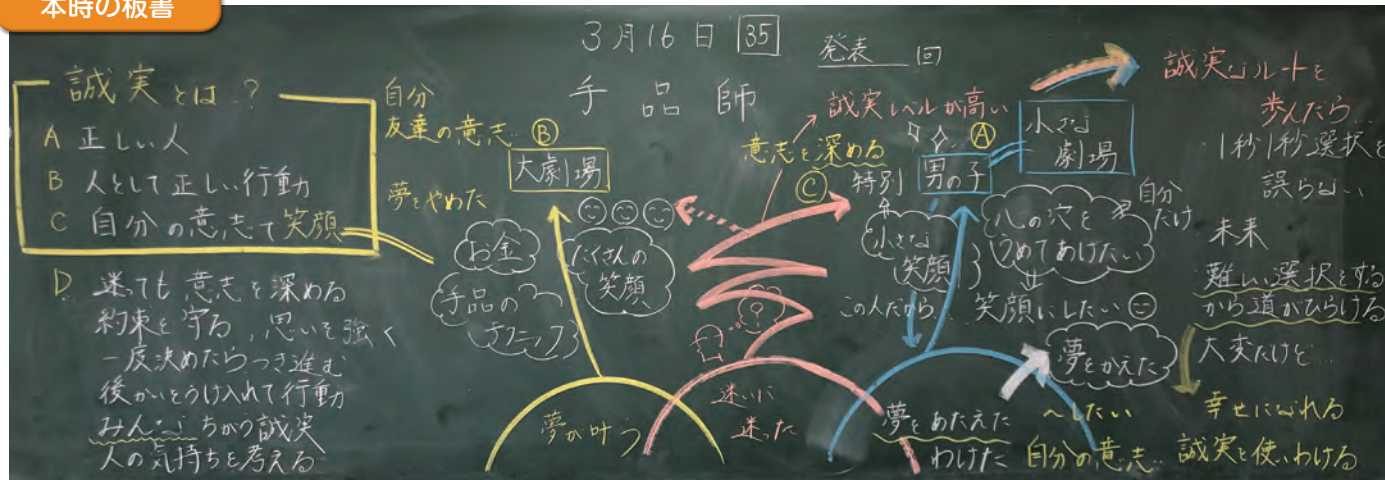 本時の板書
3月16日 35
発表 回
手品師
誠実とは?
A 正しい人
B 人として正しい行動
C 自分の意志で笑顔
D 迷っても意志を深める
約束を守る、思いを強く
一度決めたらつき進む
後かいをうけ入れて行動
みんなちがう誠実
人の気持ちを考える
自分
友達の意志‥
夢をやめた
B
大劇場
お金
手品の
テクニック
たくさんの
笑顔
夢が叶う
誠実レベルが高い
意志を深める
C
?
迷いに
迷った
A
特別
男の子
小さな
劇場
小さな
笑顔
心の穴を
うめてあげたい
自分
だけ
この人だから‥
笑顔にしたい
夢をかえた
夢をあたえた
わけた
~したい
自分の意志‥
誠実なルートを
歩んだら‥
1秒1秒選択を
誤らない
未来
難しい選択をする
から道がひらける
大変だけど‥
幸せになれる
誠実を使いわける